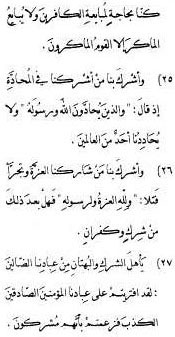 كنا بحاجةٍ لمبايعة الكافرين ولا يبايع
الماكر إلا القوم الماكرون .
(٢٥) وأشرك بنا من أشركنا في المحادّة
إذ قال : " والذين يحادّون الله ورسوله " ولا
يحاددنا أحدٌ من العالمين .
(٢٦) وأشرك بنا من شاركنا العزة وتجرأ
فتلا : " ولله العزة ولرسوله " فهل بعد ذلك
من شركٍ وكفران .
(٢٧) يا أهل الشرك والبهتان من عبادنا الضالين
: لقد افتريتم على عبادنا المؤمنين الصادقين
الكذب فزعمتم بأنهم مشركون .